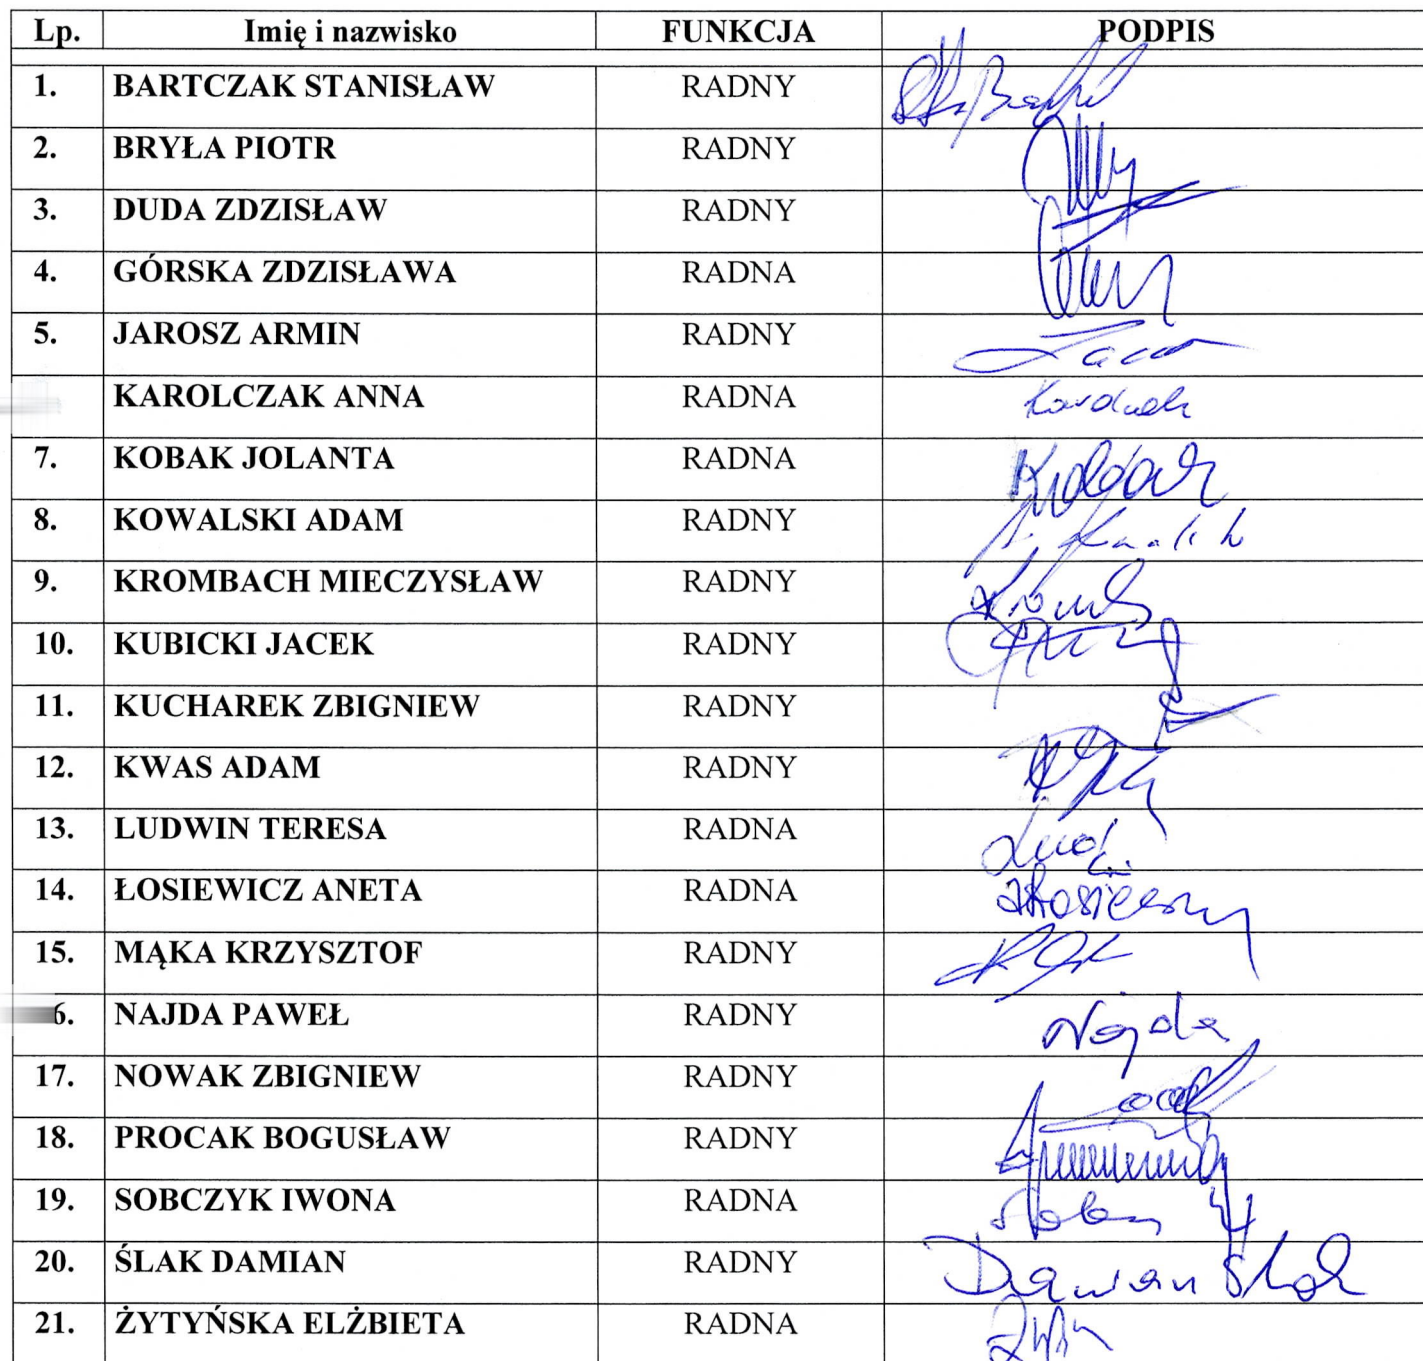 Lp. Imię i nazwisko FUNKCJA PODPIS
1. BARTCZAK STANISŁAW RADNY
2. BRYŁA PIOTR RADNY
3. DUDA ZDZISŁAW RADNY
4. GÓRSKA ZDZISŁAWA RADNA
5. JAROSZ ARMIN RADNY
KAROLCZAK ANNA RADNA
7. KOBAK JOLANTA RADNA
8. KOWALSKI ADAM RADNY
9. KROMBACH MIECZYSŁAW RADNY
10. KUBICKI JACEK RADNY
11. KUCHAREK ZBIGNIEW RADNY
12. KWAS ADAM RADNY
13. LUDWIN TERESA RADNA
14. ŁOSIEWICZ ANETA RADNA
15. MĄKA KRZYSZTOF RADNY
6. NAJDA PAWEŁ RADNY Najda
17. NOWAK ZBIGNIEW RADNY
18. PROCAK BOGUSŁAW RADNY
19. SOBCZYK IWONA RADNA
20. ŚLAK DAMIAN RADNY Damian Ślak
21. ŻYTYŃSKA ELŻBIETA RADNA